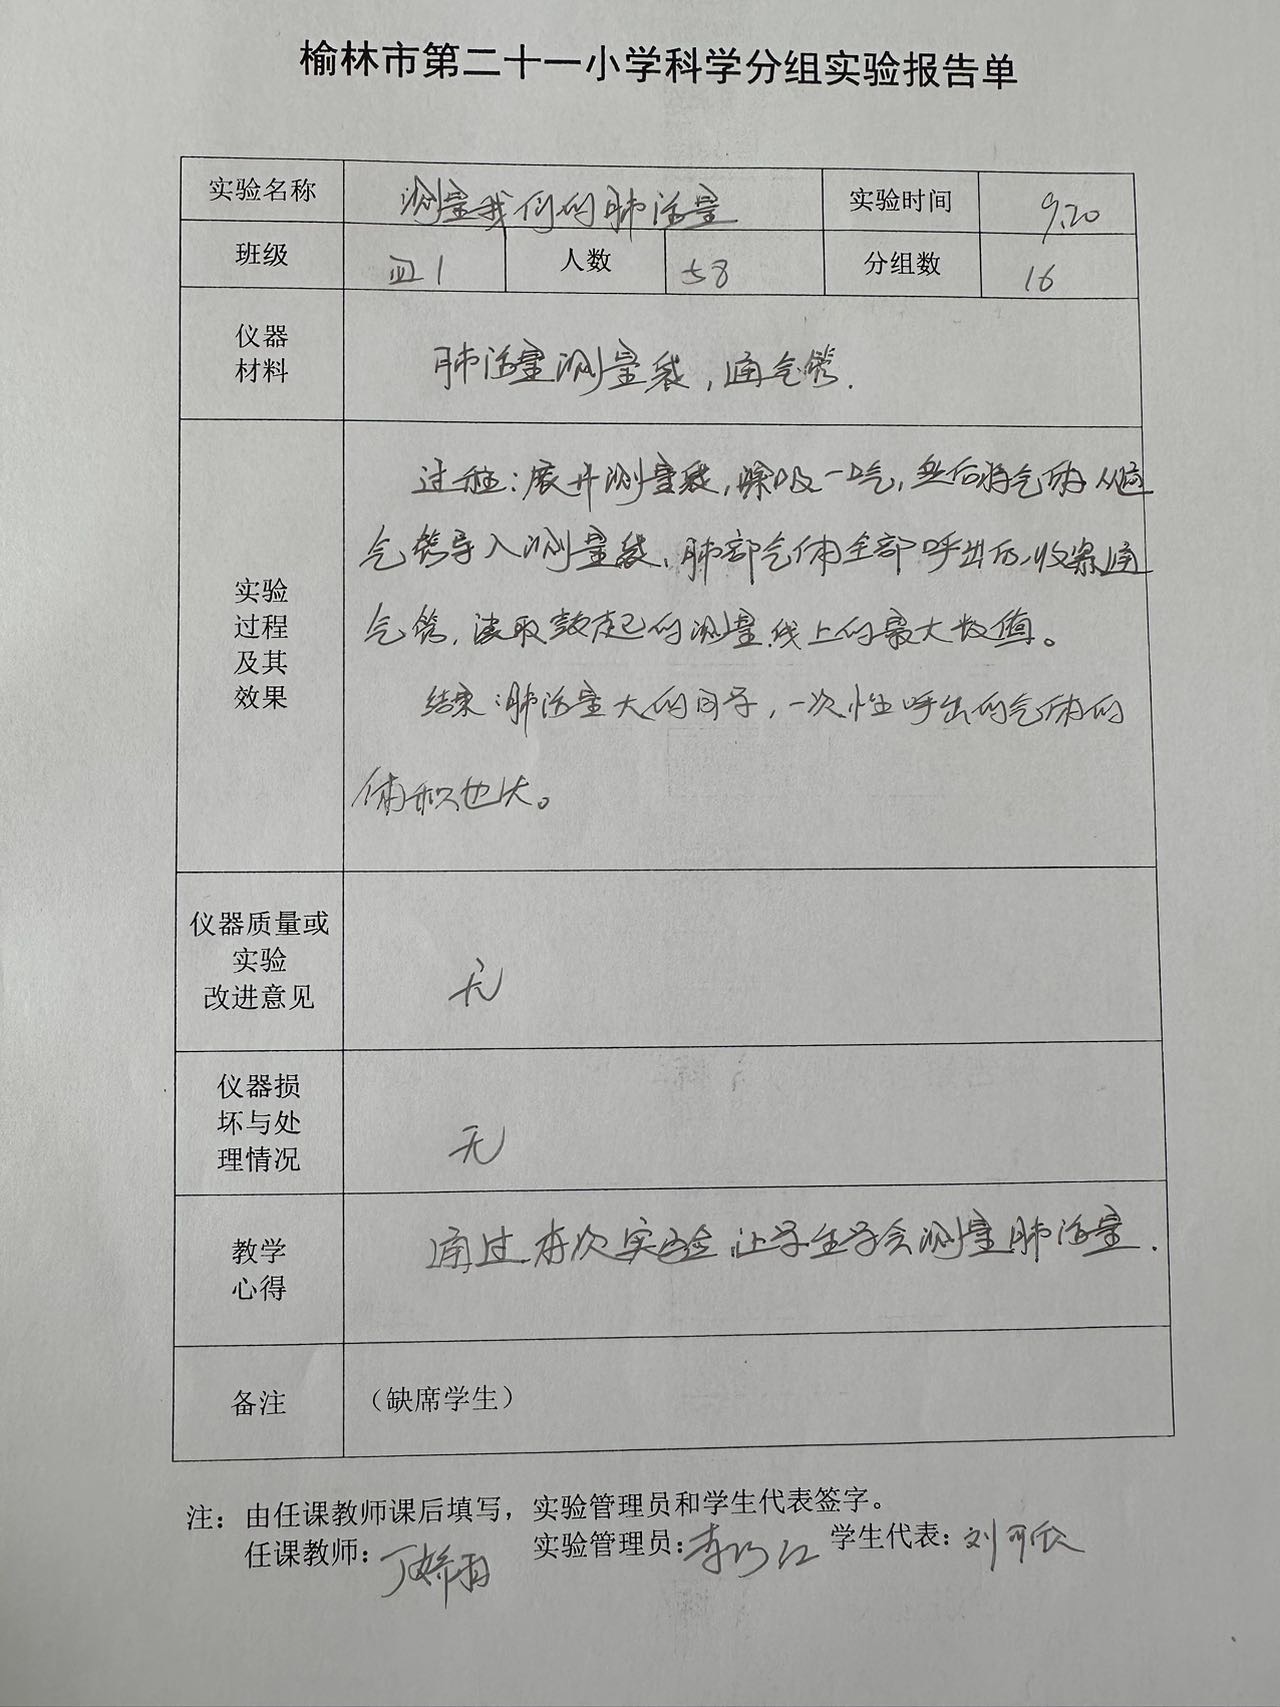 榆林市第二十一小学科学分组实验报告单
实验名称 测量我们的肺活量 实验时间 9.20
班级 四1 人数 58 分组数 16
仪器
材料
肺活量测量袋，通气管.
实验
过程
及其
效果
过程：展开测量袋，深吸一口气，然后将气体从通
气管导入测量袋，肺部气体全部呼出后，收紧通
气管，读取鼓起的测量线上的最大数值。
结果：肺活量大的同学，一次性呼出的气体的
体积也大。
仪器质量或
实验
改进意见
无
仪器损
坏与处
理情况
无
教学
心得
通过本次实验，让学生学会测量肺活量.
备注 （缺席学生）
注：由任课教师课后填写，实验管理员和学生代表签字。
任课教师：丁娇雨 实验管理员：李 江 学生代表：刘可欣